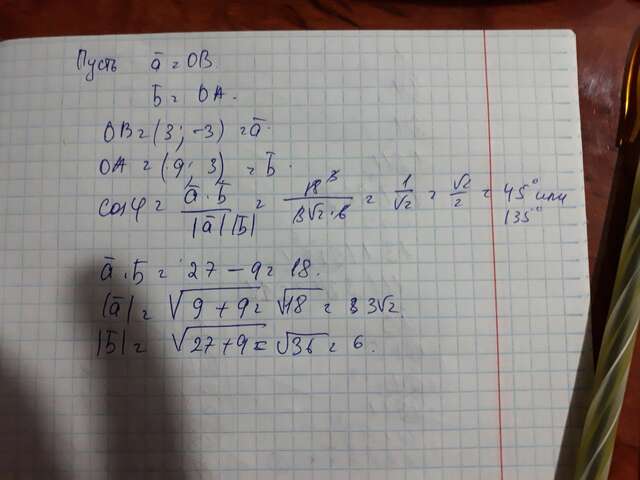 Пусть a̅ = OB
b̅ = OA.
OB = (3; -3) = a̅.
OA = (9; 3) = b̅.
cos φ = a̅·b̅ / |a̅| |b̅| = 18 3 / 3√2·6 = 1/√2 = √2/2 = 45° или 135°
a̅·b̅ = 27 – 9 = 18.
|a̅| = √9 + 9 = √18 = 3√2.
|b̅| = √27+9 = √36 = 6.